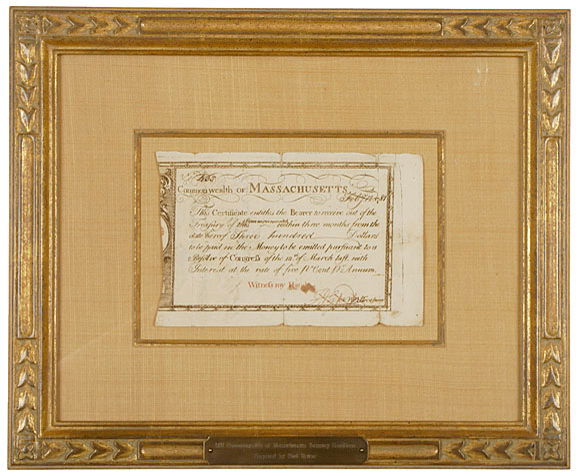 No. 455
Commonwealth OF MASSACHUSETTS
This Certificate entitles the Bearer to receive out of the
Treasury of this Commonwealth within three months from the
date hereof Three hundred Dollars
to be paid in the Money to be emitted pursuant to a
Resolve of Congress of the of March last, with
Interest at the rate of five ⅌ Cent ⅌ Annum.
Witness my
Commonwealth of Massachusetts Treasury
Engraved by Paul Revere